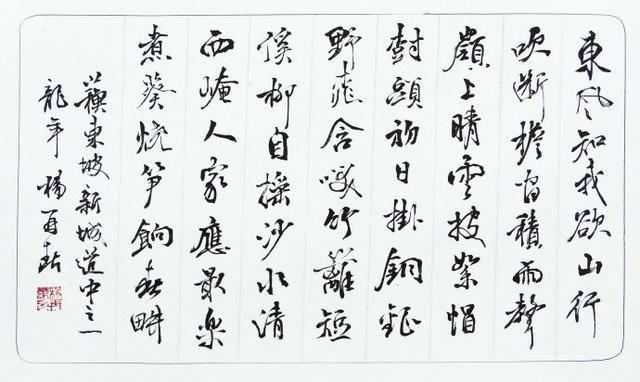 東風知我欲山行
吹斷檐間積雨聲
嶺上晴雲披絮帽
樹頭初日掛銅鉦
野桃含咲竹籬短
溪柳自搖沙水清
西崦人家應最樂
煮葵燒笋餉春畊
蘇東坡新城道中之一
龍年 楊再春